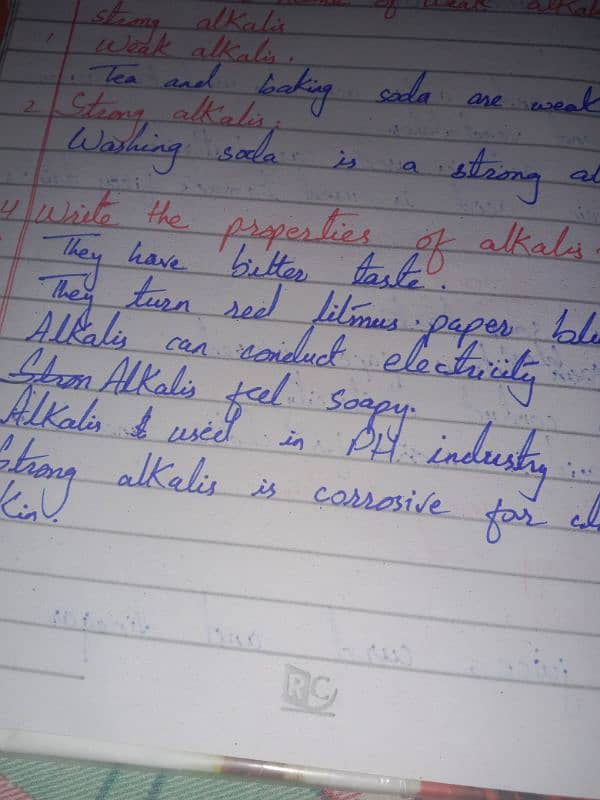 of weak alkal
strong alkalis
1. Weak alkalis.
Tea and baking soda are weak
2 Strong alkalis:
Washing soda is a strong al
4 Write the properties of alkalis.
They have bitter taste.
They turn red litmus paper blu
Alkalis can conduct electricity
Stron Alkalis feel soapy.
Alkalis used in PH industry
Strong alkalis is corrosive for
kin.
RC